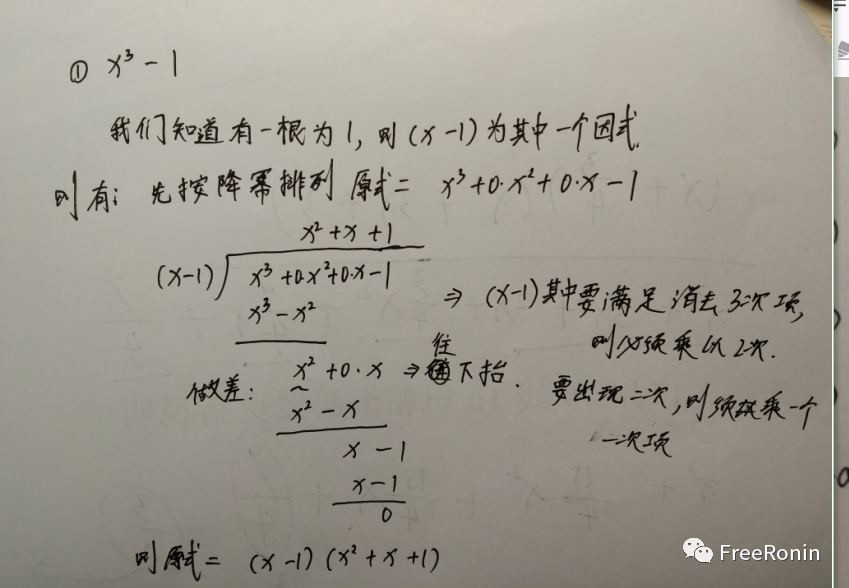 ① x³ - 1
我们知道有一根为1, 则(x-1)为其中一个因式.
则有: 先按降幂排列 原式= x³+0·x²+0·x-1
x²+x+1
(x-1) x³+0·x²+0·x-1
x³-x²
x²+0·x ⇒ 往下抬.
做差:
x²-x
x-1
x-1
0
⇒ (x-1)其中要满足消去3次项,
则必须乘以2次.
要出现二次,则须乘一个
一次项
则原式= (x-1)(x²+x+1)
FreeRonin